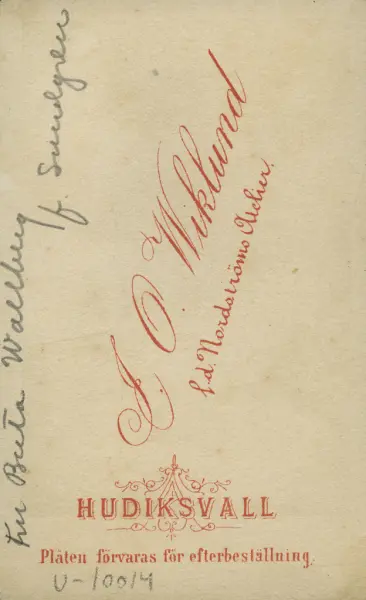 J. O. Wiklund
f.d. Nordströms Atelier.
HUDIKSVALL
Plåten förvaras för efterbeställning.
U-10014
Fru Brita Wallberg
f. Sundgren